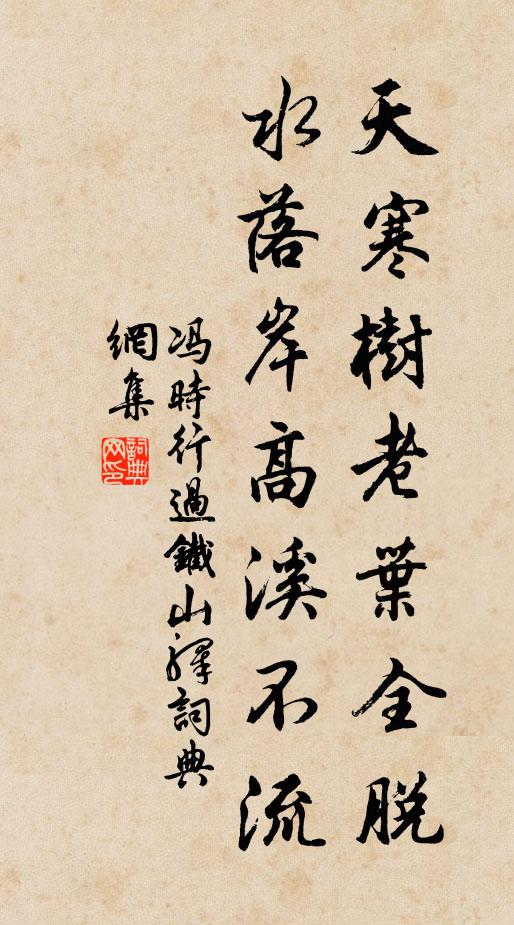 天寒樹老葉全脱
水落岸高溪不流
馮時行過鐵山驛詞典
網集
詞典網印